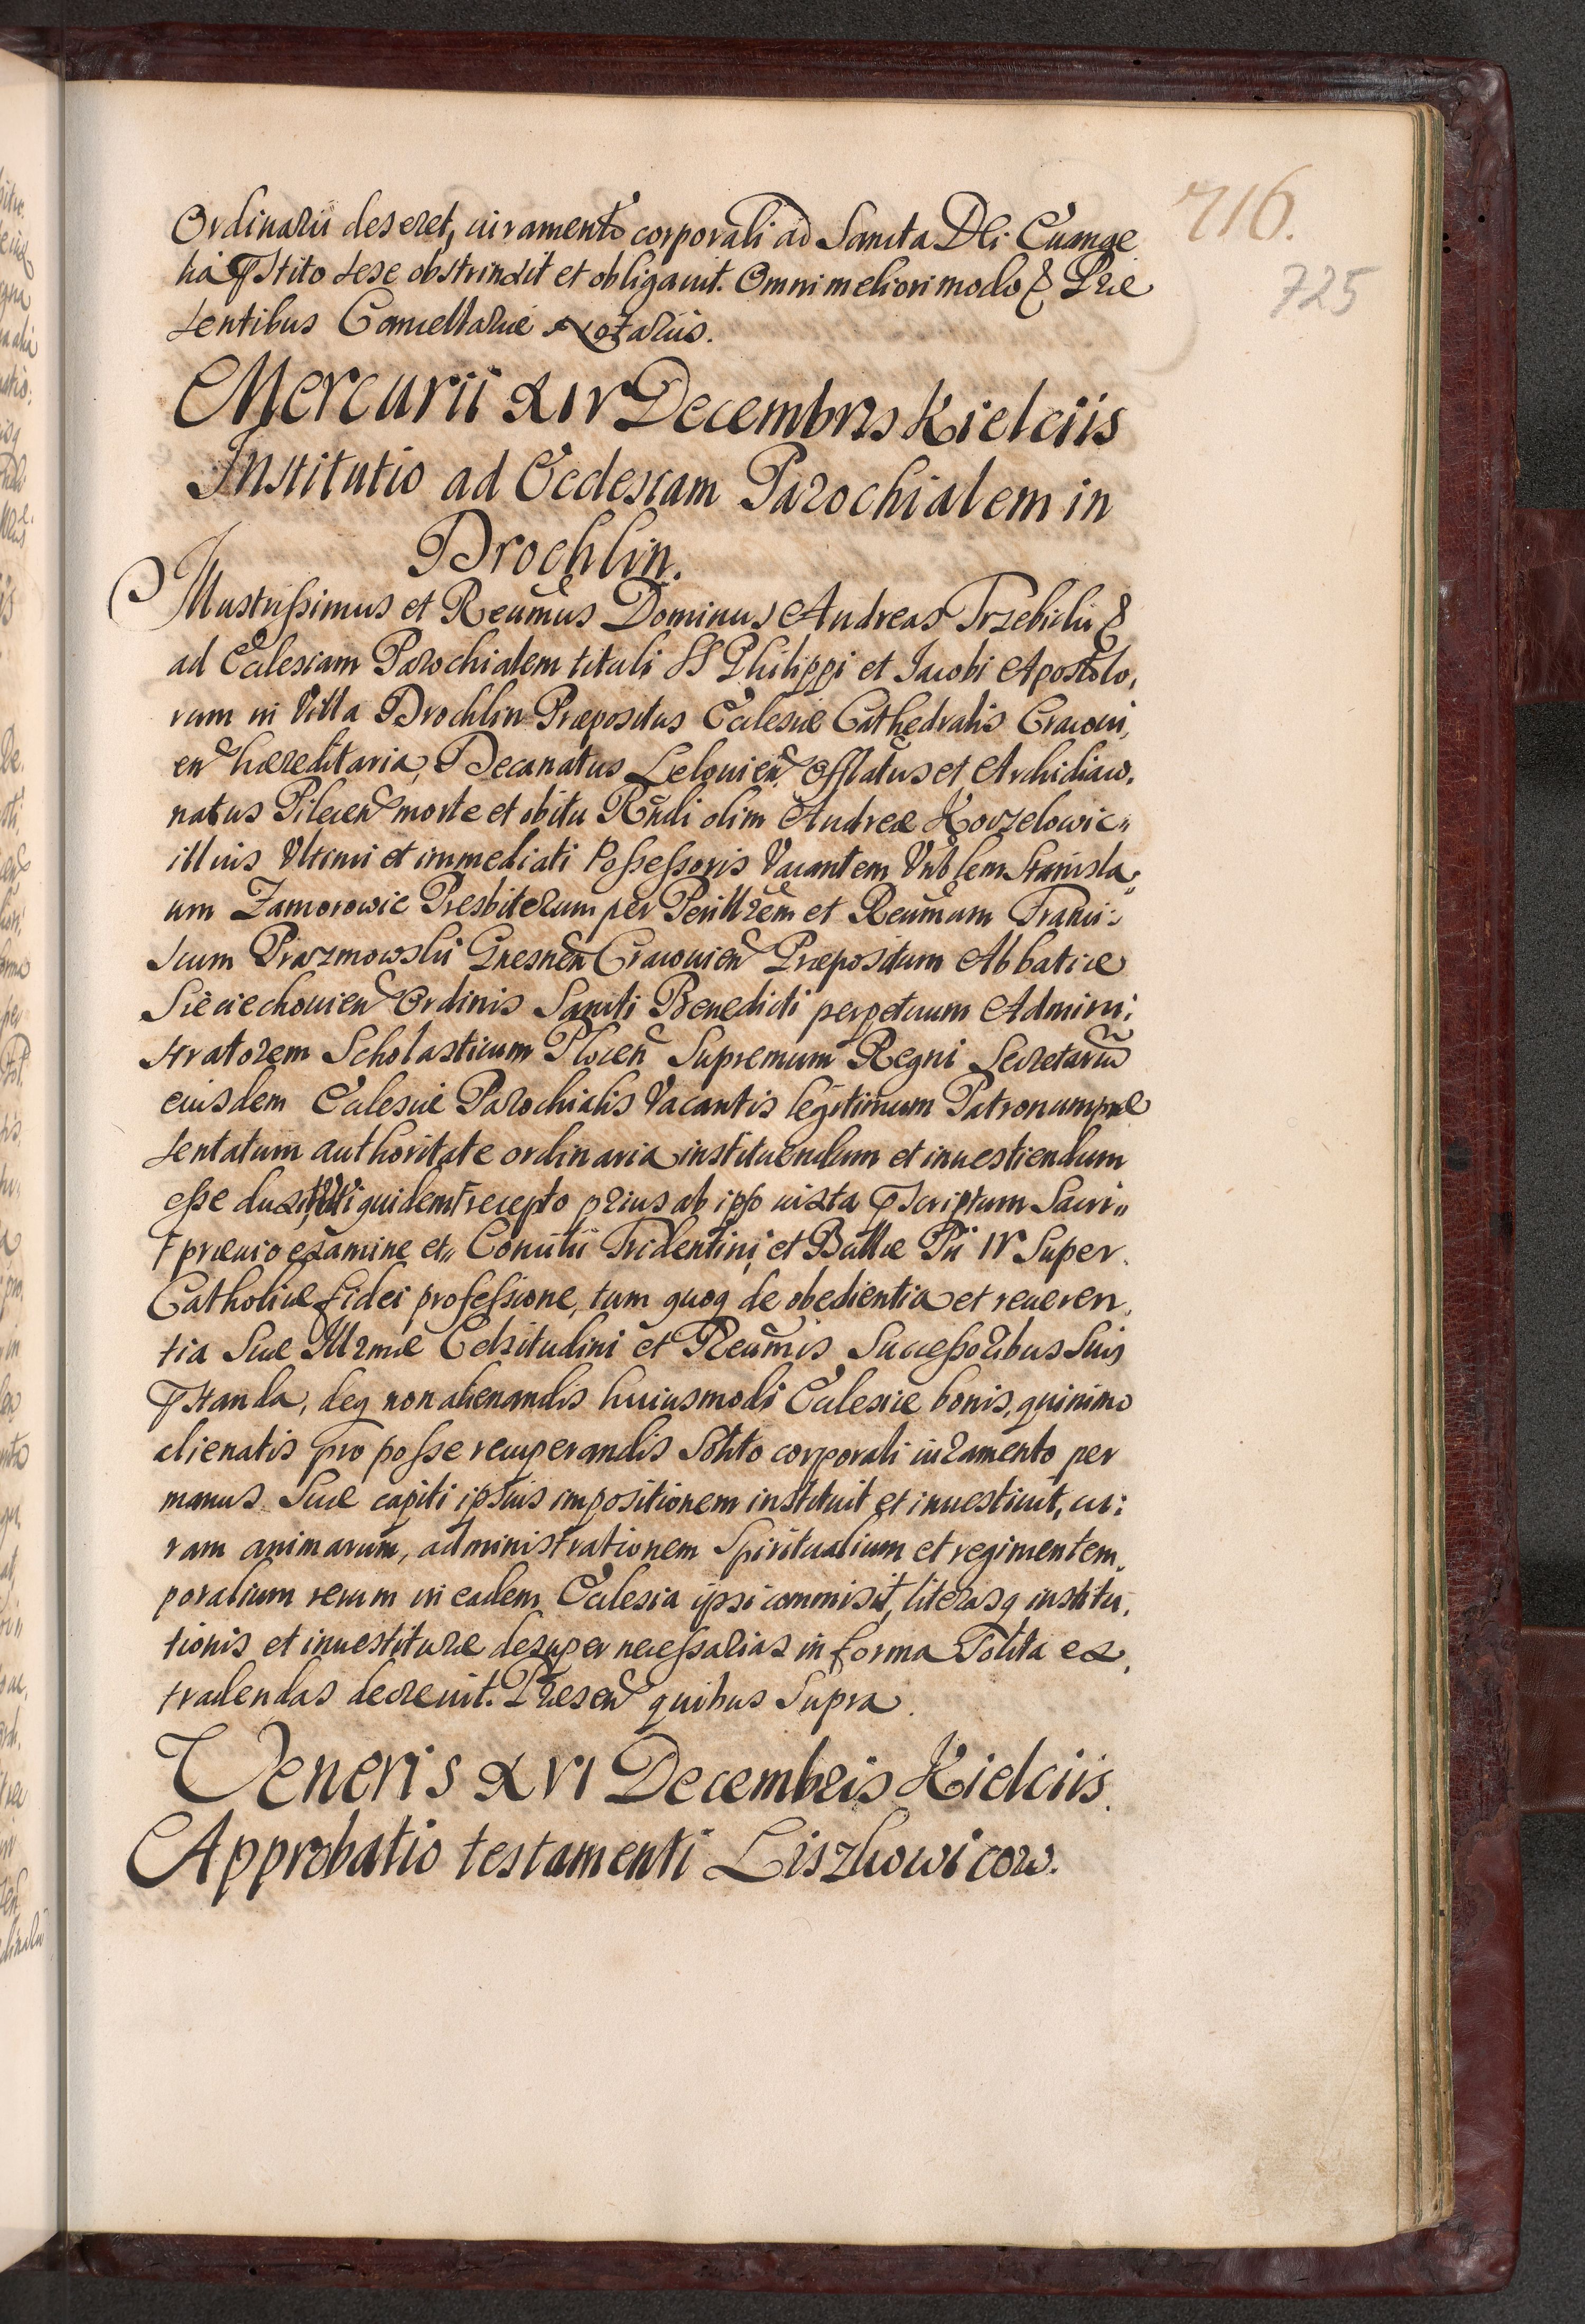 716.
725
Ordinarii deseret, iuramento corporali ad Sancta Dei Euange
lia pstito sese obstrinxit et obligauit. Omni meliori modo & Præ
sentibus Cancellariæ Notariis.
Mercurii XIV Decembris Kielciis
Institutio ad Ecclesiam Parochialem in
Drochlin.
Illustrissimus et Reumus Dominus Andreas Trzebicki &
ad Ecclesiam Parochialem tituli SS Philippi et Jacobi Aposto,
rum in Villa Drochlin Præpositus Ecclesiæ Cathedralis Cracoui,
en hæreditaria, Decanatus Leloviен Offlatus et Archidiaco,
natus Pilecen morte et obitu Rndi olim Andreæ Korzelowic"
illius Vltimi et immediati Possessoris Vacantem Vnblem Stanisla"
um Zamorowic Presbiterum per Perillrem et Reumum Franci:
scum Prazmowski Gnesnen Cracouien Præpositum Abbatiæ
Sieciechouien Ordinis Sancti Benedicti perpetuum Admini:
stratorem Scholasticum Plocen Supremum Regni Secretariu
eiusdem Ecclesiæ Parochialis Vacantis legitimum Patronum præ
sentatum authoritate ordinaria instituendum et inuestiendum
esse duxit, Vti quidem† recepto prius ab ipso iuxta pscriptum Sacri"
† præuio examine et" Concilii Tridentini et Bullæ Pii IV Super
Catholicæ fidei professione, tum quoq de obedientia et reueren,
tia Suæ Illrmæ Celsitudini et Reumis Successoribus Suis
pstanda, deq non alienandis huiusmodi Ecclesiæ bonis, quinimo
alienatis pro posse recuperandis Solito corporali iuramento per
manus Suæ capiti ipsius impositionem instituit et inuestiuit, cu:
ram animarum, administrationem Spiritualium et regimen tem,
poralium rerum in eadem Ecclesia ipsi commisit, literasq institu,
tionis et inuestituræ desuper necessarias in forma Solita ex,
tradendas decreuit. Præsen quibus Supra.
Veneris XVI Decembris Kielciis.
Approbatio testamenti Liszkowicow.